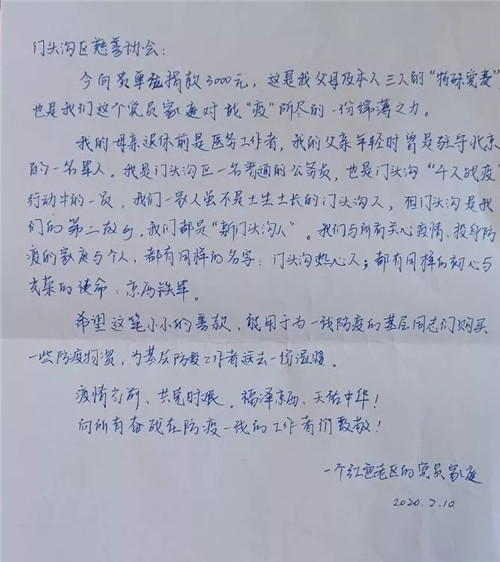 门头沟区慈善协会：
今向贵单位捐款3000元，这是我父母及本人三人的“特殊党费”
也是我们这个党员家庭对战“疫”所尽的一份绵薄之力。
我的母亲退休前是医务工作者，我的父亲年轻时曾是驻守北京
的一名军人。我是门头沟区一名普通的公务员，也是门头沟“千人战疫”
行动中的一员。我们一家人虽不是土生土长的门头沟人，但门头沟是我
们的第二故乡，我们都是“新门头沟人”。我们与所有关心疫情、投身防
疫的家庭与个人，都有同样的名字：门头沟热心人；都有同样的初心与
光荣的使命：京西铁军。
希望这笔小小的善款，能用于为一线防疫的基层同志们购买
一些防疫物资，为基层防疫工作者送去一份温暖。
疫情当前、共克时艰、福泽京西、天佑中华！
向所有奋战在防疫一线的工作者们致敬！
一个红色老区的党员家庭
2020.2.10